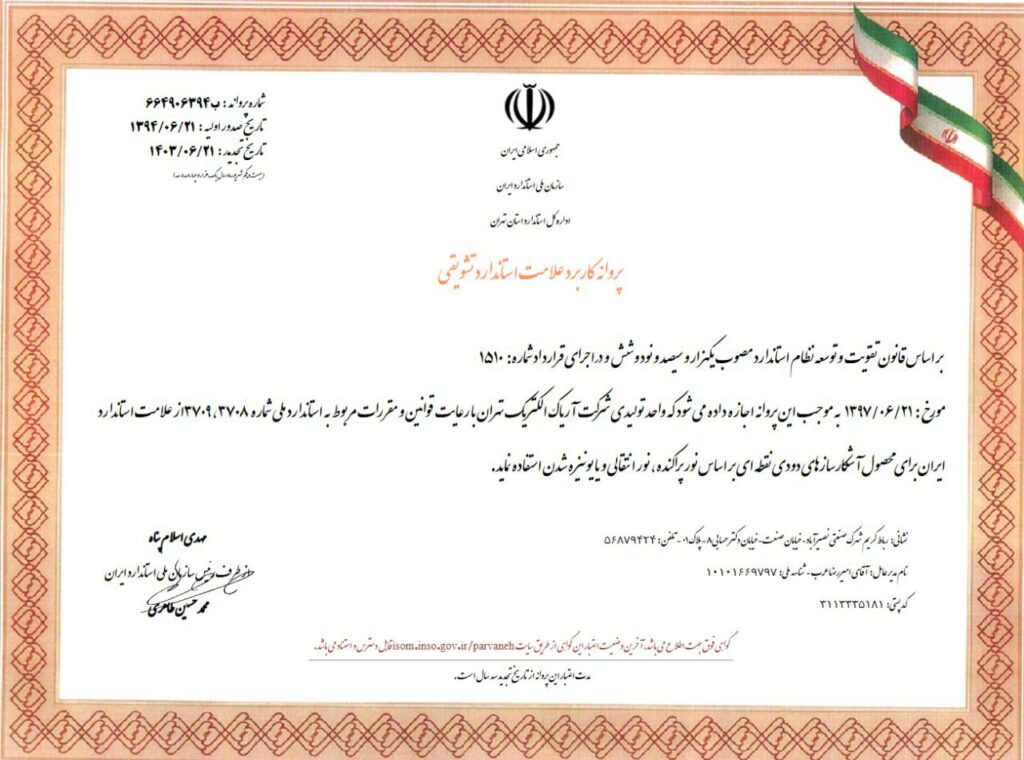 شماره پروانه: ب۶۶۴۹۰۶۳۹۴
تاریخ صدور اولیه: ۱۳۹۴/۰۶/۲۱
تاریخ تجدید: ۱۴۰۳/۰۶/۲۱
(بیست و یکم شهریور ماه سال یک هزار و چهارصد و سه)
جمهوری اسلامی ایران
سازمان ملی استاندارد ایران
اداره کل استاندارد استان تهران
پروانه کاربرد علامت استاندارد تشویقی
بر اساس قانون تقویت و توسعه نظام استاندارد مصوب یکهزار و سیصد و نود و شش و در اجرای قرارداد شماره: ۱۵۱۰
مورخ: ۱۳۹۷/۰۶/۲۱ به موجب این پروانه اجازه داده می شود که واحد تولیدی شرکت آریاک الکتریک تهران با رعایت قوانین و مقررات مربوط به استاندارد ملی شماره ۳۷۰۸، ۳۷۰۹ از علامت استاندارد
ایران برای محصول آشکارسازهای دودی نقطه ای بر اساس نور پراکنده، نور انتقالی و یا یونیزه شدن استفاده نماید.
نشانی: رباط کریم شهرک صنعتی نصیرآباد-خیابان صنعت-خیابان دکتر حسابی۸-پلاک۰۱-تلفن: ۵۶۸۷۹۴۲۴
نام مدیرعامل: آقای امیررضا عرب-شناسه ملی: ۱۰۱۰۱۶۶۹۷۹۷
کدپستی: ۳۱۱۳۳۳۵۱۸۱
مهدی اسلام پناه
از طرف رئیس سازمان ملی استاندارد ایران
محمد حسین طاهری
گواهی فوق جهت اطلاع می باشد، آخرین وضعیت اعتبار این گواهی از طریق سایت isom.inso.gov.ir/parvaneh قابل دسترس و استناد می باشد.
مدت اعتبار این پروانه از تاریخ تجدید سه سال است.